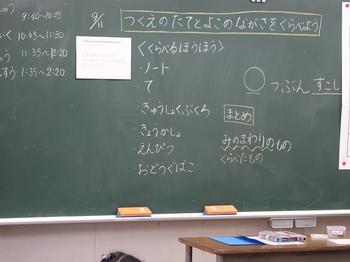 9/11
つくえのたてとよこのながさをくらべよう
9:40~10:25
10:45~11:30
11:35~12:20
すう 1:35~2:20
<くらべるほうほう>
・ノート
・て
きゅうしょくぶくろ
・きょうかしょ
・えんぴつ
・おどうぐばこ
まとめ
みのまわりのもの
くらべたもの
○つぶん すこし